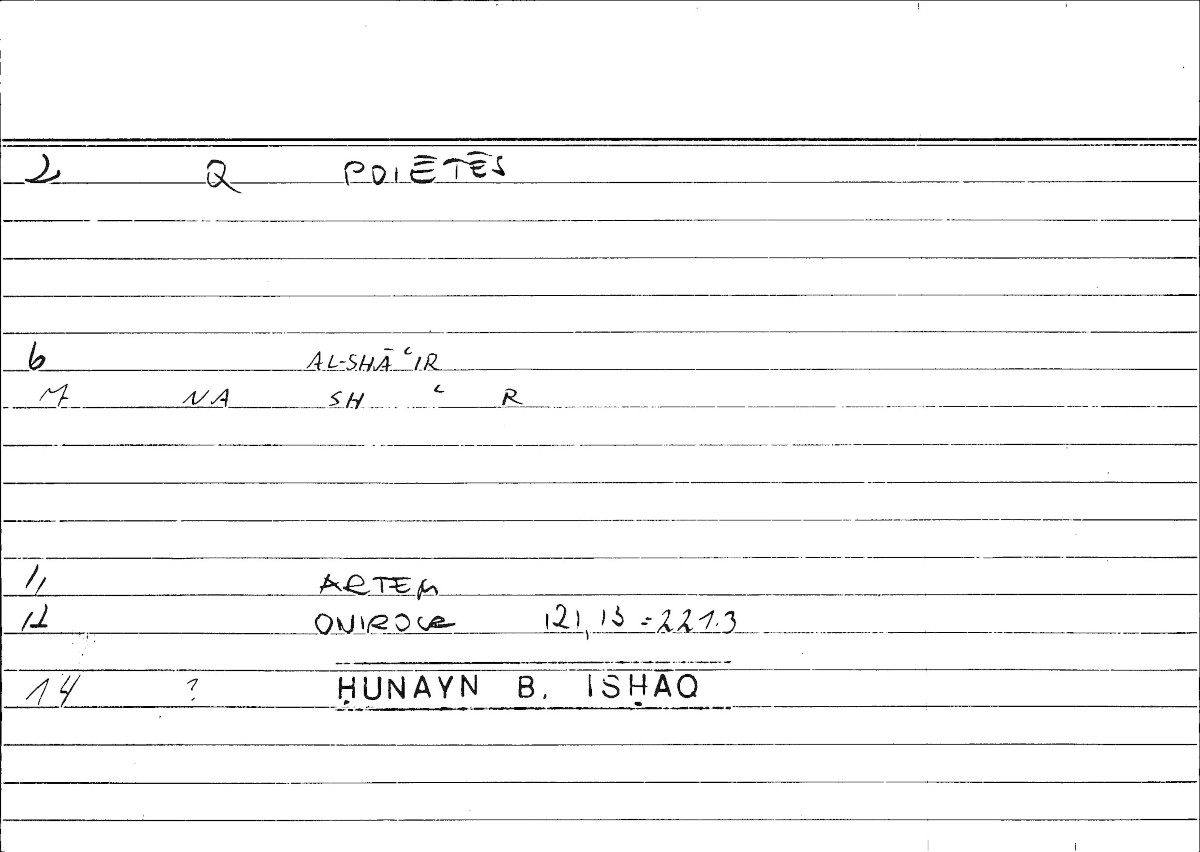 2 Q POIĒTĒS
6 AL-SHĀʿIR
7 NA SH ʿ R
11 ARTEM
12 ONIROCR 121,13 = 221.3
14 ? ḤUNAYN B. ISḤĀQ